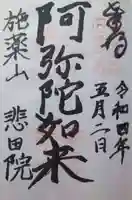 奉拝
令和四年
五月二日
阿弥陀如来
施薬山 悲田院